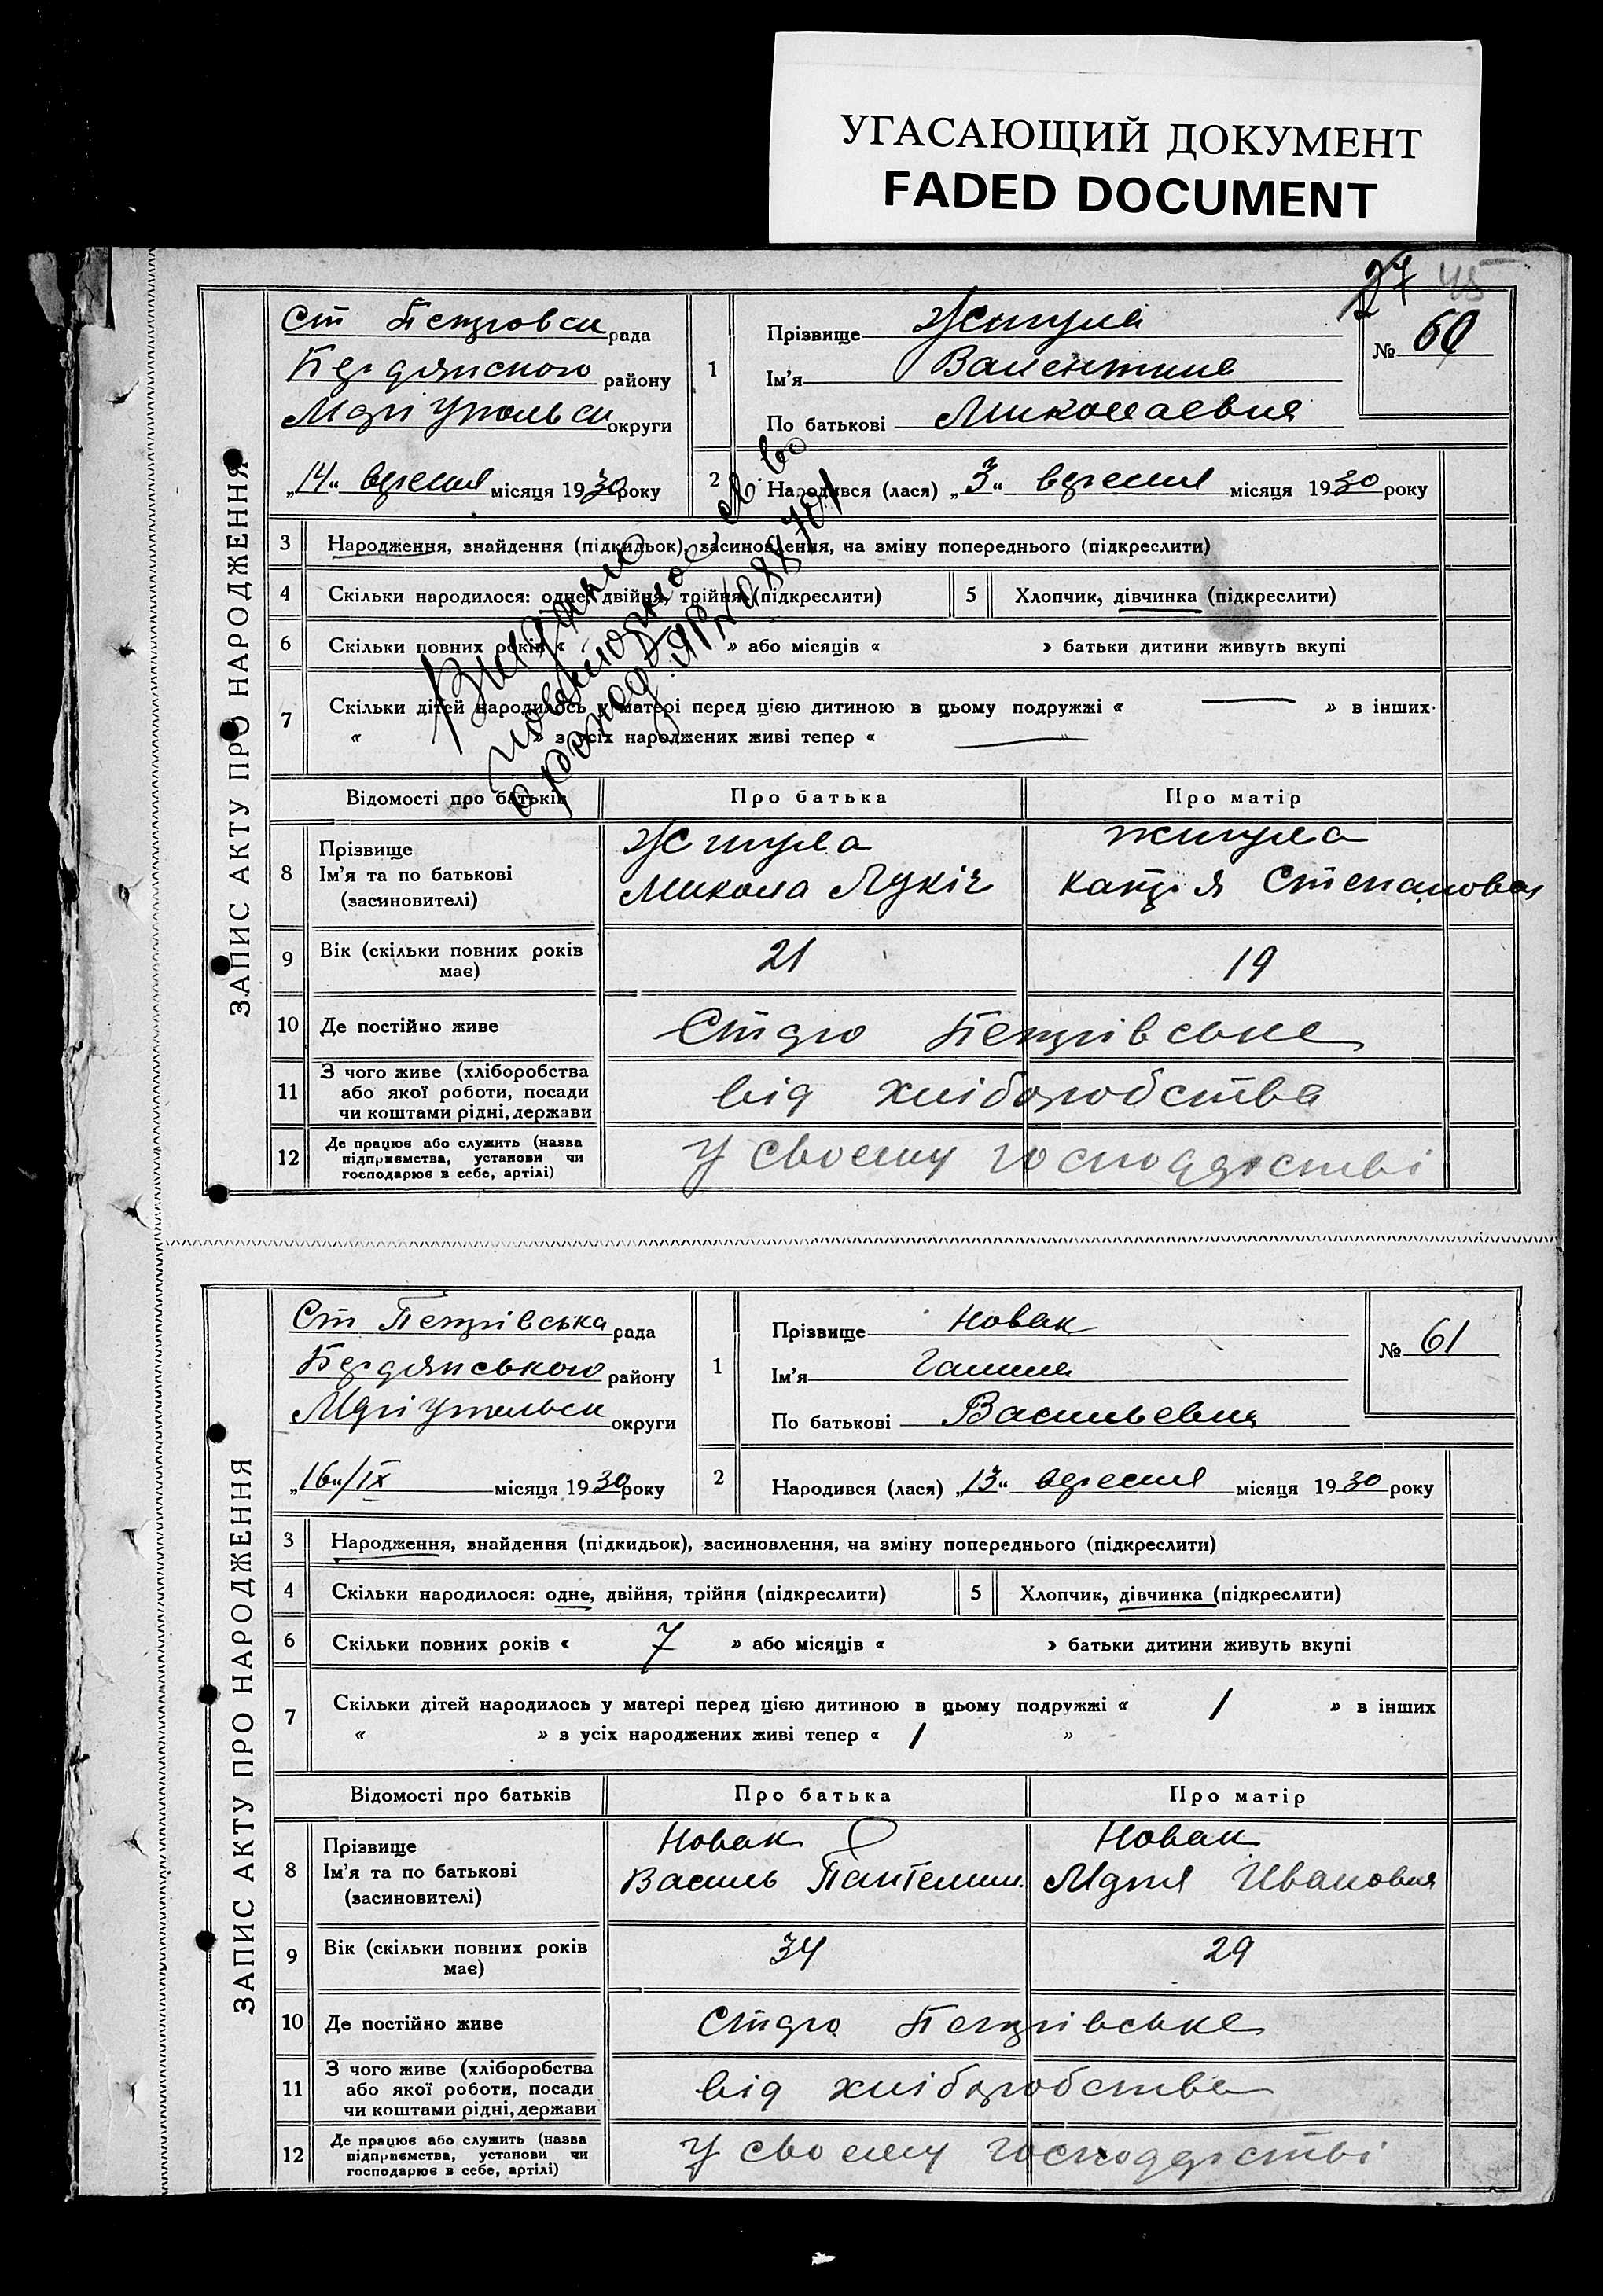 УГАСАЮЩИЙ ДОКУМЕНТ
FADED DOCUMENT
27 45
ЗАПИС АКТУ ПРО НАРОДЖЕННЯ
Ст Петровск рада
Бердянского району
Маріупольск округи
„14“ вересня місяця 1930 року
1
Прізвище Жигула
Ім'я Валентина
По батькові Миколаевна
№ 60
2 Народився (лася) „3“ вересня місяця 1930 року
3 Народження, знайдення (підкидьок), засиновлення, на зміну попереднього (підкреслити)
4 Скільки народилося: одне, двійня, трійня (підкреслити) 5 Хлопчик, дівчинка (підкреслити)
6 Скільки повних років « » або місяців « » батьки дитини живуть вкупі
7 Скільки дітей народилось у матері перед цією дитиною в цьому подружжі « — » в інших
« » з усіх народжених живі тепер « — »
Выдано
повторное св во
о рожд.
Відомості про батьків Про батька Про матір
8 Прізвище
Ім'я та по батькові
(засиновителі)
Жигула
Микола Лукіч
Жигула
Катря Степановна
9 Вік (скільки повних років має) 21 19
10 Де постійно живе Старо Петрівське
11 З чого живе (хліборобства
або якої роботи, посади
чи коштами рідні, держави
від хліборобства
12 Де працює або служить (назва
підприємства, установи чи
господарює в себе, артілі)
у своему господарстві
ЗАПИС АКТУ ПРО НАРОДЖЕННЯ
Ст Петрівська рада
Бердянського району
Маріупольск округи
„16“/IX місяця 1930 року
1
Прізвище Новак
Ім'я Галина
По батькові Васильевна
№ 61
2 Народився (лася) „13“ вересня місяця 1930 року
3 Народження, знайдення (підкидьок), засиновлення, на зміну попереднього (підкреслити)
4 Скільки народилося: одне, двійня, трійня (підкреслити) 5 Хлопчик, дівчинка (підкреслити)
6 Скільки повних років « 7 » або місяців « » батьки дитини живуть вкупі
7 Скільки дітей народилось у матері перед цією дитиною в цьому подружжі « 1 » в інших
« » з усіх народжених живі тепер « 1 »
Відомості про батьків Про батька Про матір
8 Прізвище
Ім'я та по батькові
(засиновителі)
Новак
Василь Пантелим.
Новак
Мария Ивановна
9 Вік (скільки повних років має) 34 29
10 Де постійно живе Старо Петрівське
11 З чого живе (хліборобства
або якої роботи, посади
чи коштами рідні, держави
від хліборобства
12 Де працює або служить (назва
підприємства, установи чи
господарює в себе, артілі)
у своему господарстві